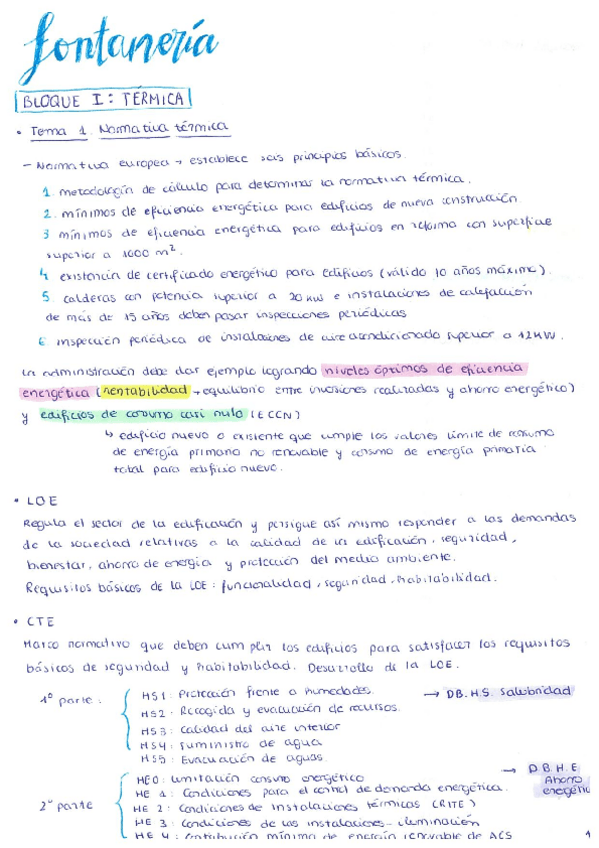 fontanería
BLOQUE I: TÉRMICA
• Tema 1. Normativa térmica
- Normativa europea → establece seis principios básicos.
1. metodología de cálculo para determinar la normativa térmica.
2. mínimos de eficiencia energética para edificios de nueva construcción.
3 mínimos de eficiencia energética para edificios en reforma con superficie
superior a 1000 m².
4 existencia de certificado energético para edificios (válido 10 años máximo).
5 calderas con potencia superior a 20 kW e instalaciones de calefacción
de más de 15 años deben pasar inspecciones periódicas
6 inspección periódica de instalaciones de aire acondicionado superior a 12 kW.
La administración debe dar ejemplo logrando niveles óptimos de eficiencia
energética (rentabilidad → equilibrio entre inversiones realizadas y ahorro energético)
y edificios de consumo casi nulo (ECCN)
↳ edificio nuevo o existente que cumple los valores límite de consumo
de energía primaria no renovable y consumo de energía primaria
total para edificio nuevo.
• LOE
Regula el sector de la edificación y persigue así mismo responder a las demandas
de la sociedad relativas a la calidad de la edificación, seguridad,
bienestar, ahorro de energía y protección del medio ambiente.
Requisitos básicos de la LOE: funcionalidad, seguridad, habitabilidad.
• CTE
Marco normativo que deben cumplir los edificios para satisfacer los requisitos
básicos de seguridad y habitabilidad. Desarrollo de la LOE.
1º parte:
HS1: Protección frente a humedades. → DB.H.S. Salubridad
HS2: Recogida y evacuación de recursos.
HS3: Calidad del aire interior
HS4: Suministro de agua
HS5: Evacuación de aguas.
2º parte
HE0: Limitación consumo energético → DB.H.E
HE 1: Condiciones para el control de demanda energética. Ahorro
HE 2: Condiciones de instalaciones térmicas (RITE) energético
HE 3: Condiciones de las instalaciones iluminación
HE 4: Contribución mínima de energía renovable de ACS
1